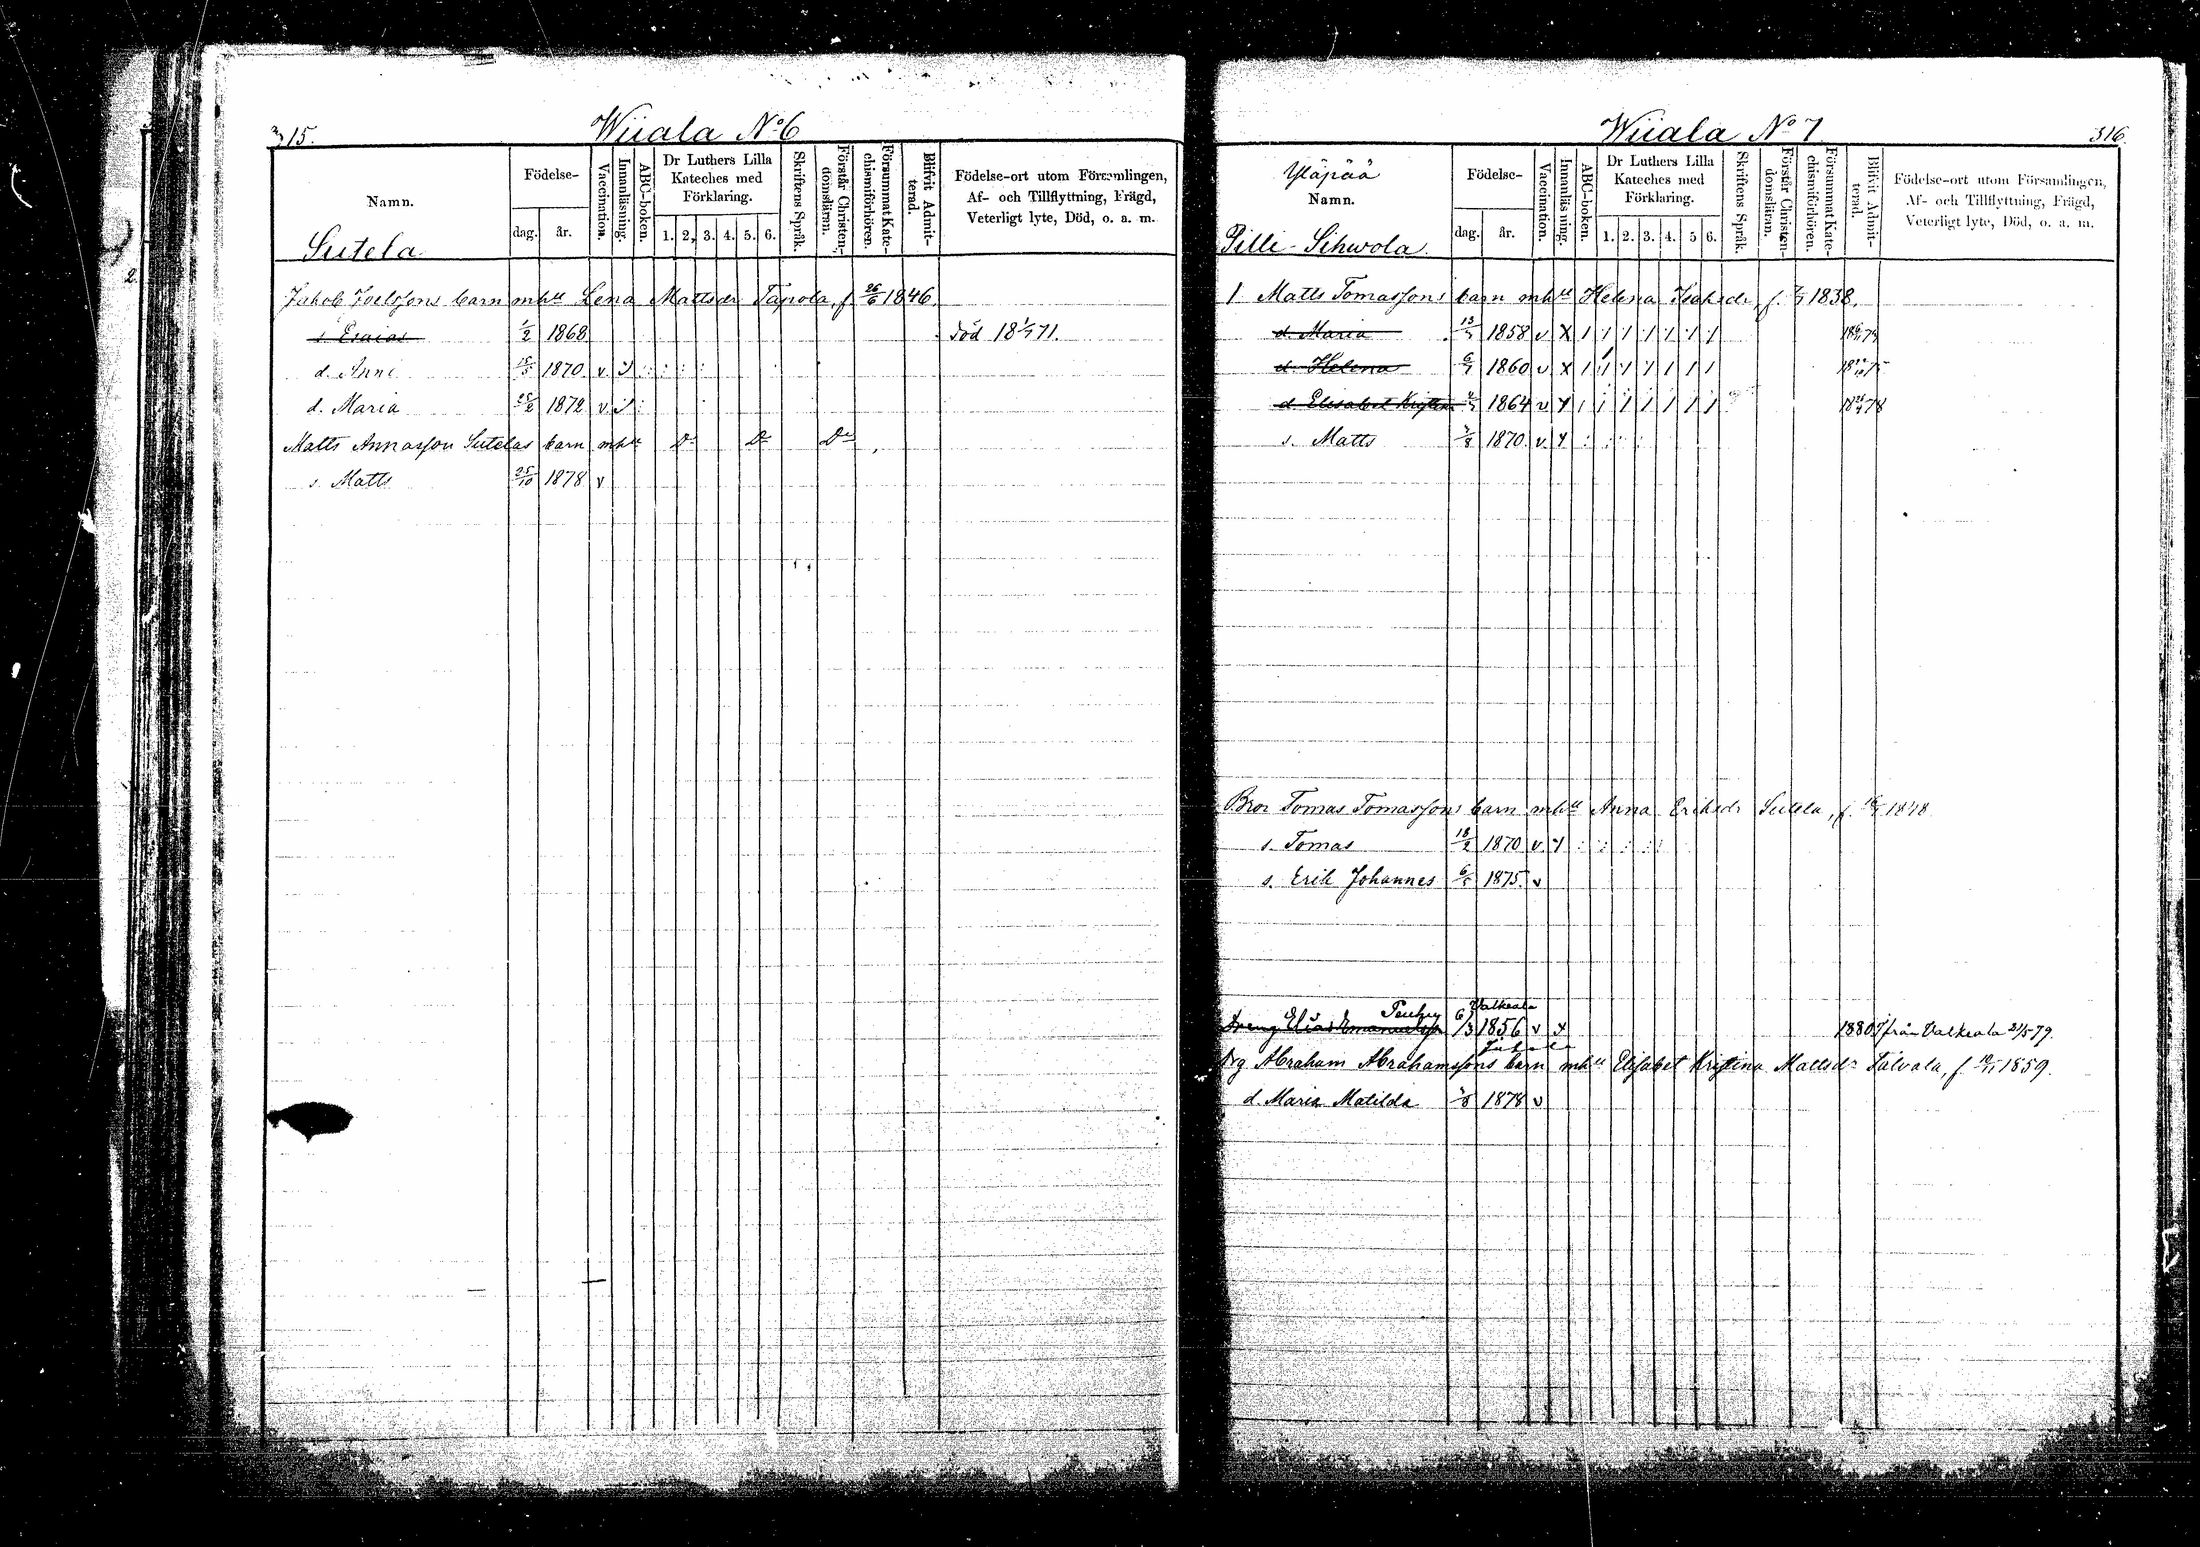 315.
Wiiala No 6
Namn.
Födelse-
dag. år.
Vaccination.
Innanläsning.
ABC-boken.
Dr Luthers Lilla Kateches med Förklaring.
1. 2. 3. 4. 5. 6.
Skriftens Språk.
Förstår Christendomsläran.
Försummat Katechismiförhören.
Blifvit Admitterad.
Födelse-ort utom Församlingen,
Af- och Tillflyttning, Frägd,
Veterligt lyte, Död, o. a. m.
Sutela
Jakob Joelssons barn mhu Lena Mattsdr Tapola, f. 26/6 1846.
s Esaias 1/2 1868 död 18 1/7 71.
d. Anni 15/5 1870. v
d. Maria 25/2 1872 v
Matts Annasson Sutelas barn mhu Do Do Do
s Matts 25/10 1878 v
Wiiala No 7
316.
Yläpää
Namn.
Födelse-
dag. år.
Vaccination.
Innanläsning.
ABC-boken.
Dr Luthers Lilla Kateches med Förklaring.
1. 2. 3. 4. 5 6.
Skriftens Språk.
Förstår Christendomsläran.
Försummat Katechismiförhören.
Blifvit Admitterad.
Födelse-ort utom Församlingen,
Af- och Tillflyttning, Frägd,
Veterligt lyte, Död, o. a. m.
Pilli-Sihwola
1 Matts Tomassons barn mhu Helena Isaksdr, f. 1838.
d. Maria 1858 v x
d. Helena 1860 v x
d Elisabet Kristina 1864 v
s. Matts 1870. v
Bror Tomas Tomassons barn mhu Anna Eriksdr Sutela, f. 1848
s. Tomas 18/2 1870 v
s. Erik Johannes 1875. v
Valkeala
Dreng Elias Emanuelsson 6/3 1856 v x 1880 från Valkeala 21/5 79.
Drg Abraham Abrahamssons barn mhu Elisabet Kristina Mattsdr, f. 1859.
d. Maria Matilda 1878 v